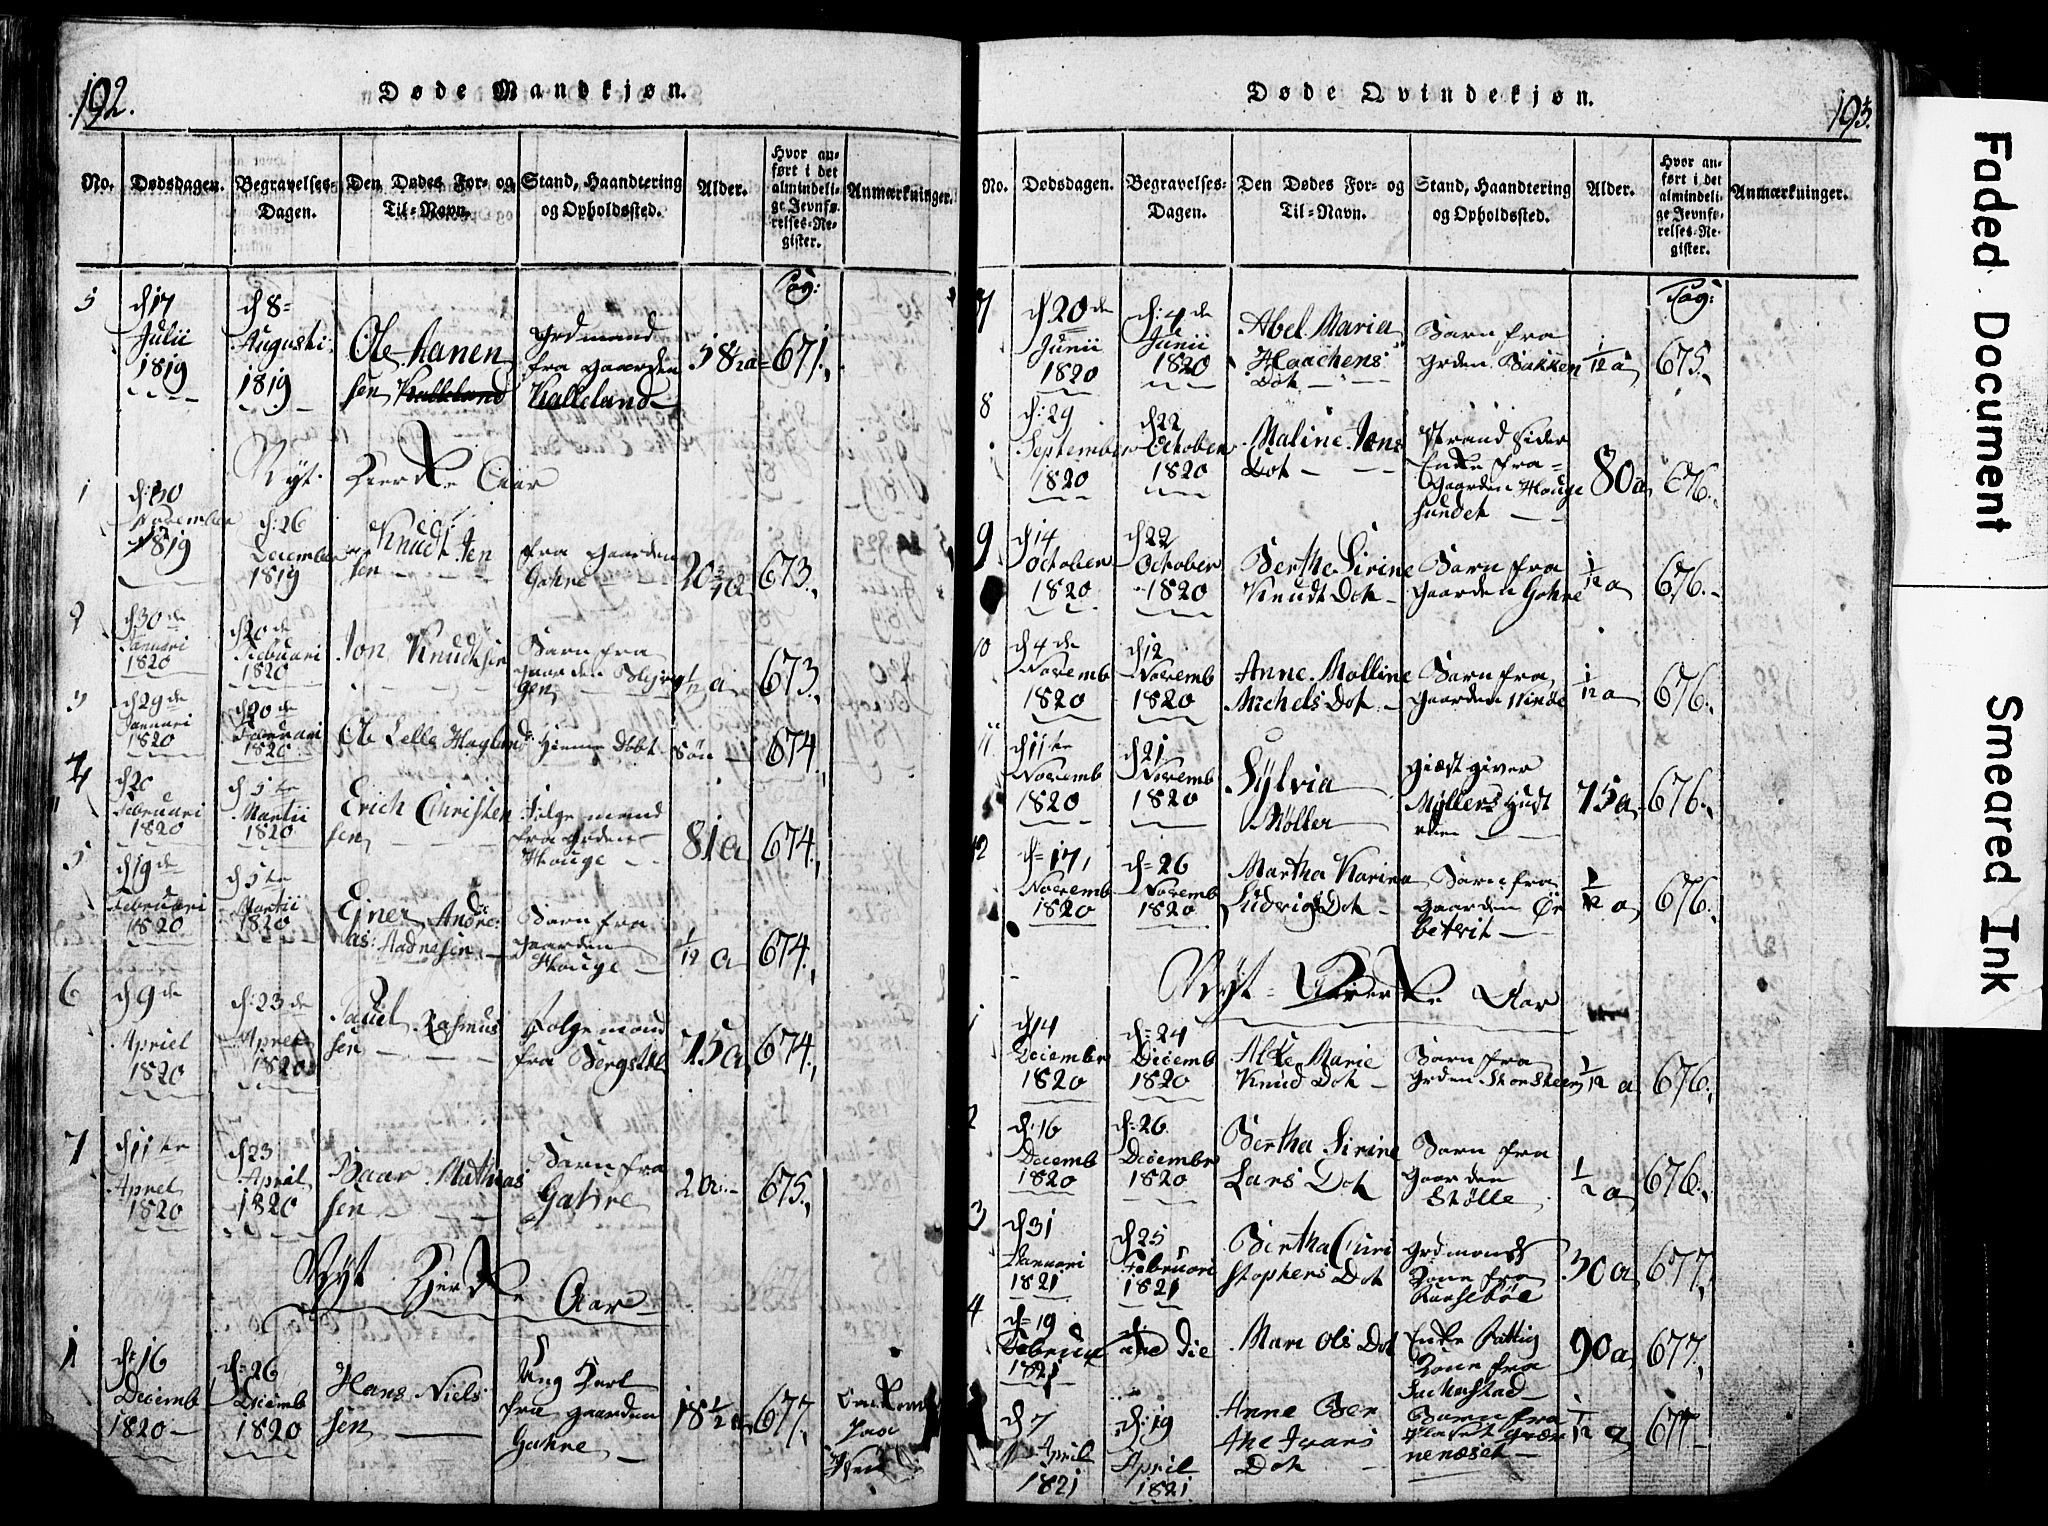 192.
Døde Mandkjøn.
No.
Dødsdagen.
Begravelses-
Dagen.
Den Dødes For- og
Til-Navn.
Stand, Haandtering
og Opholdssted.
Alder.
Hvor an-
ført i det
almindeli-
ge Jevnfø-
relses-Re-
gister.
Anmærkninger.
Pag:
5
d 17
Julii
1819
d 8=
Augusti
1819
Ole Hanen
sen Kalleland
Grdmand
fra Gaarden
Kalleland
58
671.
Nyt Kierke Aar
1
d: 30
November
1819
d: 26
December
1819
Knudt Jen
sen
fra Gaarden
Gahre
20 3/4 a
673.
2
d 30 de
Januari
1820
d 20 de
Febuari
1820
Jon Knudtsen
Barn fra
Gaarden
gen
673.
3
d 29 de
Januari
1820
d 20 de
Februari
1820
Ole Helle Hagland
Hieme Døbt
Søn
674.
4
d 20
Februari
1820
d 5 te
Martii
1820
Erich Christen
sen
Følge mand
fra Grden
Houge
81 a
674.
5
d 19 de
Februari
1820
d 5 te
Martii
1820
Ejner Andre:
as: Aadnesen
Barn fra
Gaarden
Houge
1/12 a
674.
6
d 9 de
Apriel
1820
d: 23 de
Aprel
1820
Paul Rasmus
sen
Følgemand
fra Bergstøl
75 a
674.
7
d 11 te
Aprel
1820
d 23
April
1820
Baar Mathias
sen
Barn fra
Gahre
2 a
675.
Nyt Kierke Aar
1
d: 16
Decemb
1820
d= 26
Decemb
1820
Hans Niels
sen
Ung Karl
fra gaarden
Gahre
18 1/2 a
677.
193.
Døde Qvindekjøn.
No.
Dødsdagen.
Begravelses-
Dagen.
Den Dødes For- og
Til-Navn.
Stand, Haandtering
og Opholdssted.
Alder.
Hvor an-
ført i det
almindeli-
ge Jevnfø-
relses-Re-
gister.
Anmærkninger.
Pag:
7
d 20 de
Junii
1820
d: 4 de
Junii
1820
Abel Maria
Haachens
Dot
Barn fra
Grden Bakken
1/12 a
675.
8
d: 29
September
1820
d 22
October
1820
Maline Jons
Dot
Strand sider
Enke fra
Gaarden Houge
sundet
80 a
676.
9
d 14
October
1820
d 22
October
1820
Berthe Sirine
Knudt Dot
Barn fra
Gaarden Gahre
1/12 a
676.
10
d 4 de
Novemb
1820
d 12
Novemb
1820
Anne Malline
Michels Dot
Barn fra
Gaarden
1/12 a
676.
11
d 11 te
Novemb
1820
d 21
Novemb
1820
Sylvia
Møller
Giæst giver
Møllers Hust
roe
75 a
676.
12
d= 17
Novemb
1820
d= 26
Novemb
1820
Martha Karina
Ludvigs Dot
Barn fra
Gaarden Ør
betvit
1/12 a
676.
Nyt Kierke Aar
1
d 14
Decembr
1820
d= 24
Decemb
1820
Alke Marie
Knud Dot
Barn fra
Grden Skorsteen
1/12 a
676.
2
d: 16
Decemb
1820
d: 26
Decembr
1820
Bertha Sirine
Lars Dot
Barn fra
Gaarden
Stølle
1/2 a
676.
3
d 31
Januari
1821
d 25
Februari
1821
Bertha Chri
stophers Dot
Grdmands
Kone fra
30 a
677.
4
d= 19
Februa
1821
die
Mari Ols Dot
Enke Fattig
Kone fra
90 a
677.
d 7
April
1821
d: 19
April
1821
Anne Ber
the Ivars
Dot
Barn fra
nenæset
1/12 a
677
Faded Document
Smeared Ink